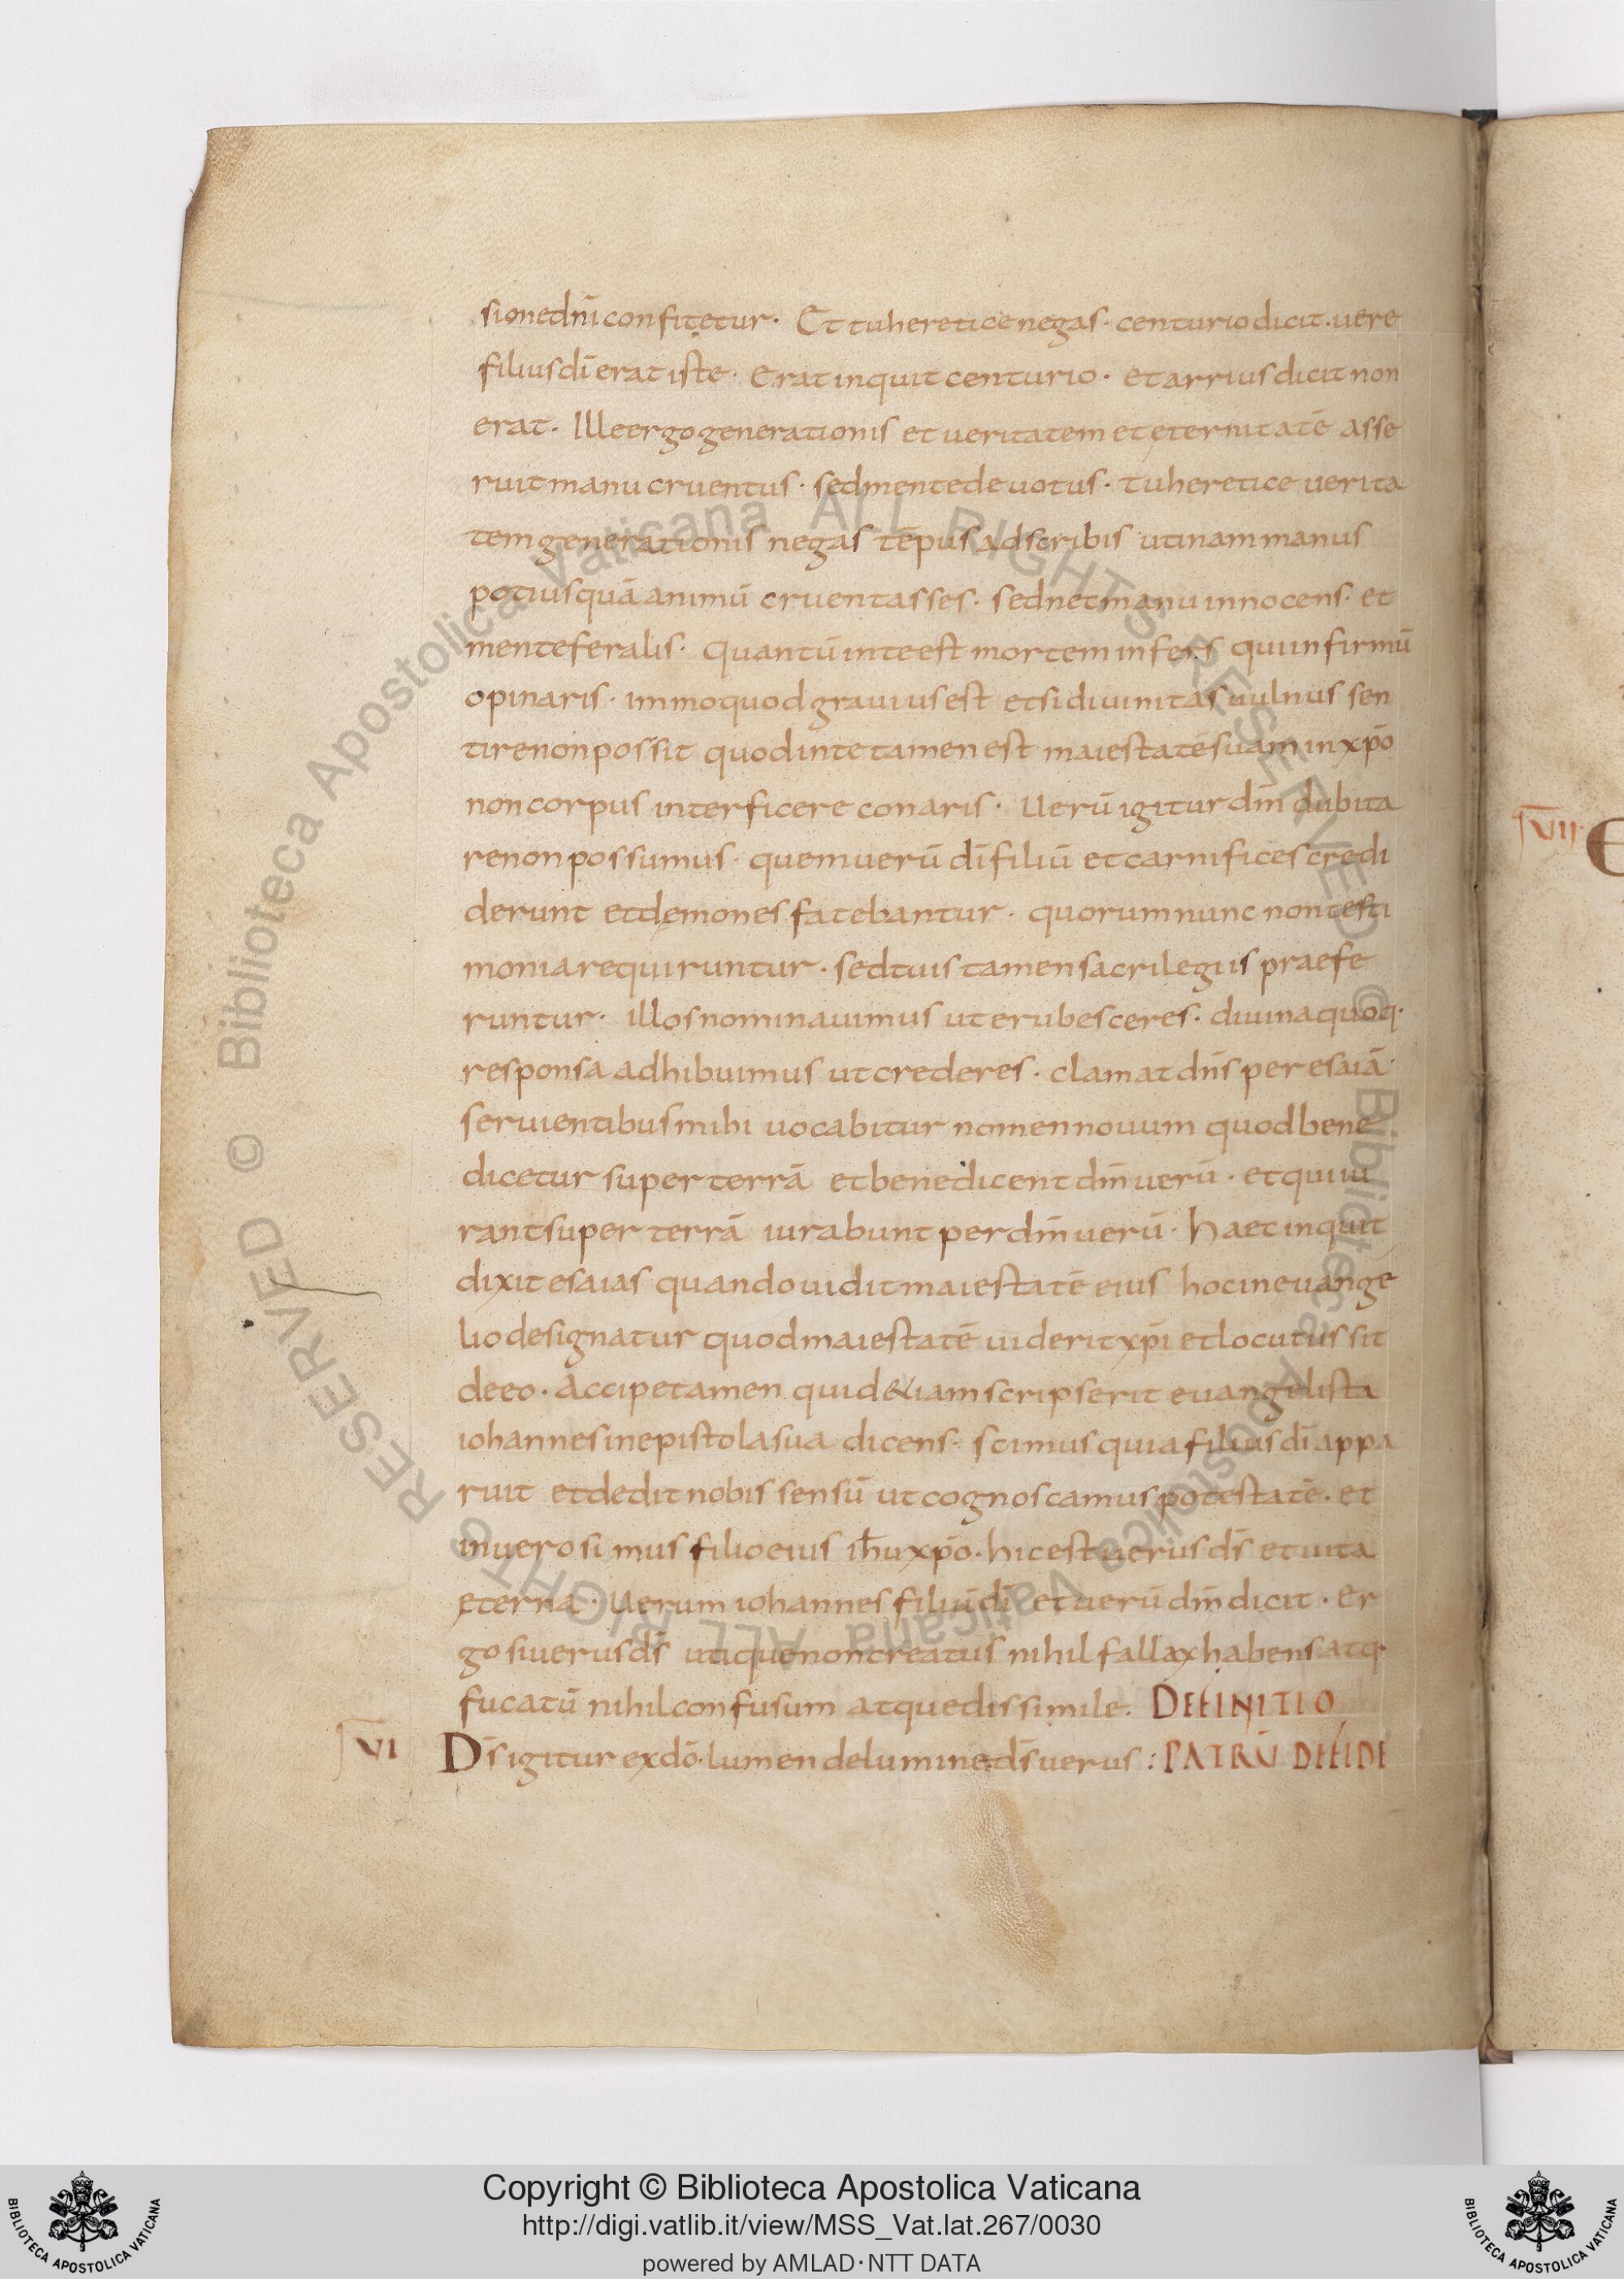 sione dñi confitetur · Et tu heretice negas · centurio dicit · vere
filius dī erat iste · Erat inquit centurio · et arrius dicit non
erat · Ille ergo generationis et veritatem et ęternitatē asse
ruit manu cruentus · sed mente devotus · tu heretice verita
tem generationis negas tēpus adscribis utinam manus
potius quā animū cruentasses · sed nec manu innocens · et
mente feralis · Quantū in te est mortem infers qui infirmū
opinaris · immo quod gravius est etsi divinitas vulnus sen
tire non possit quod in te tamen est maiestatē suam in xp̄o
non corpus interficere conaris · Uerū igitur dm̄ dubita
re non possumus · quem verū dī filiū et carnifices credi
derunt et dęmones fatebantur · quorum nunc non testi
monia requiruntur · sed tuis tamen sacrilegiis praefe
runtur · illos nominavimus ut erubesceres · divina quoq·
responsa adhibuimus ut crederes · clamat dn̄s per esaiā·
servientibus mihi vocabitur nomen novum quod bene
dicetur super terrā et benedicent dm̄ verū · et qui iu
rant super terrā iurabunt per dm̄ verū · Haec inquit
dixit esaias quando vidit maiestatē eius hoc in evange
lio designatur quod maiestatē viderit xp̄i et locutus sit
de eo · Accipe tamen quid &iam scripserit evangelista
iohannes in epistola sua dicens · scimus quia filius dī appa
ruit et dedit nobis sensū ut cognoscamus potestatē · et
in vero simus filio eius ih̄u xp̄o · hic est verus ds̄ et vita
ęterna · Uerum iohannes filiū dī et verū dm̄ dicit · Er
go si verus ds̄ utique non creatus nihil fallax habens atq·
fucatū nihil confusum atque dissimile. DEFINITIO
VI Ds̄ igitur ex dō · lumen de lumine ds̄ verus : PATRŪ DE FIDE
VII
E
© Biblioteca Apostolica Vaticana ALL RIGHTS RESERVED © Biblioteca Apostolica Vaticana ALL RIGHTS RESERVED
BIBLIOTECA APOSTOLICA VATICANA
Copyright © Biblioteca Apostolica Vaticana
http://digi.vatlib.it/view/MSS_Vat.lat.267/0030
powered by AMLAD·NTT DATA
BIBLIOTECA APOSTOLICA VATICANA